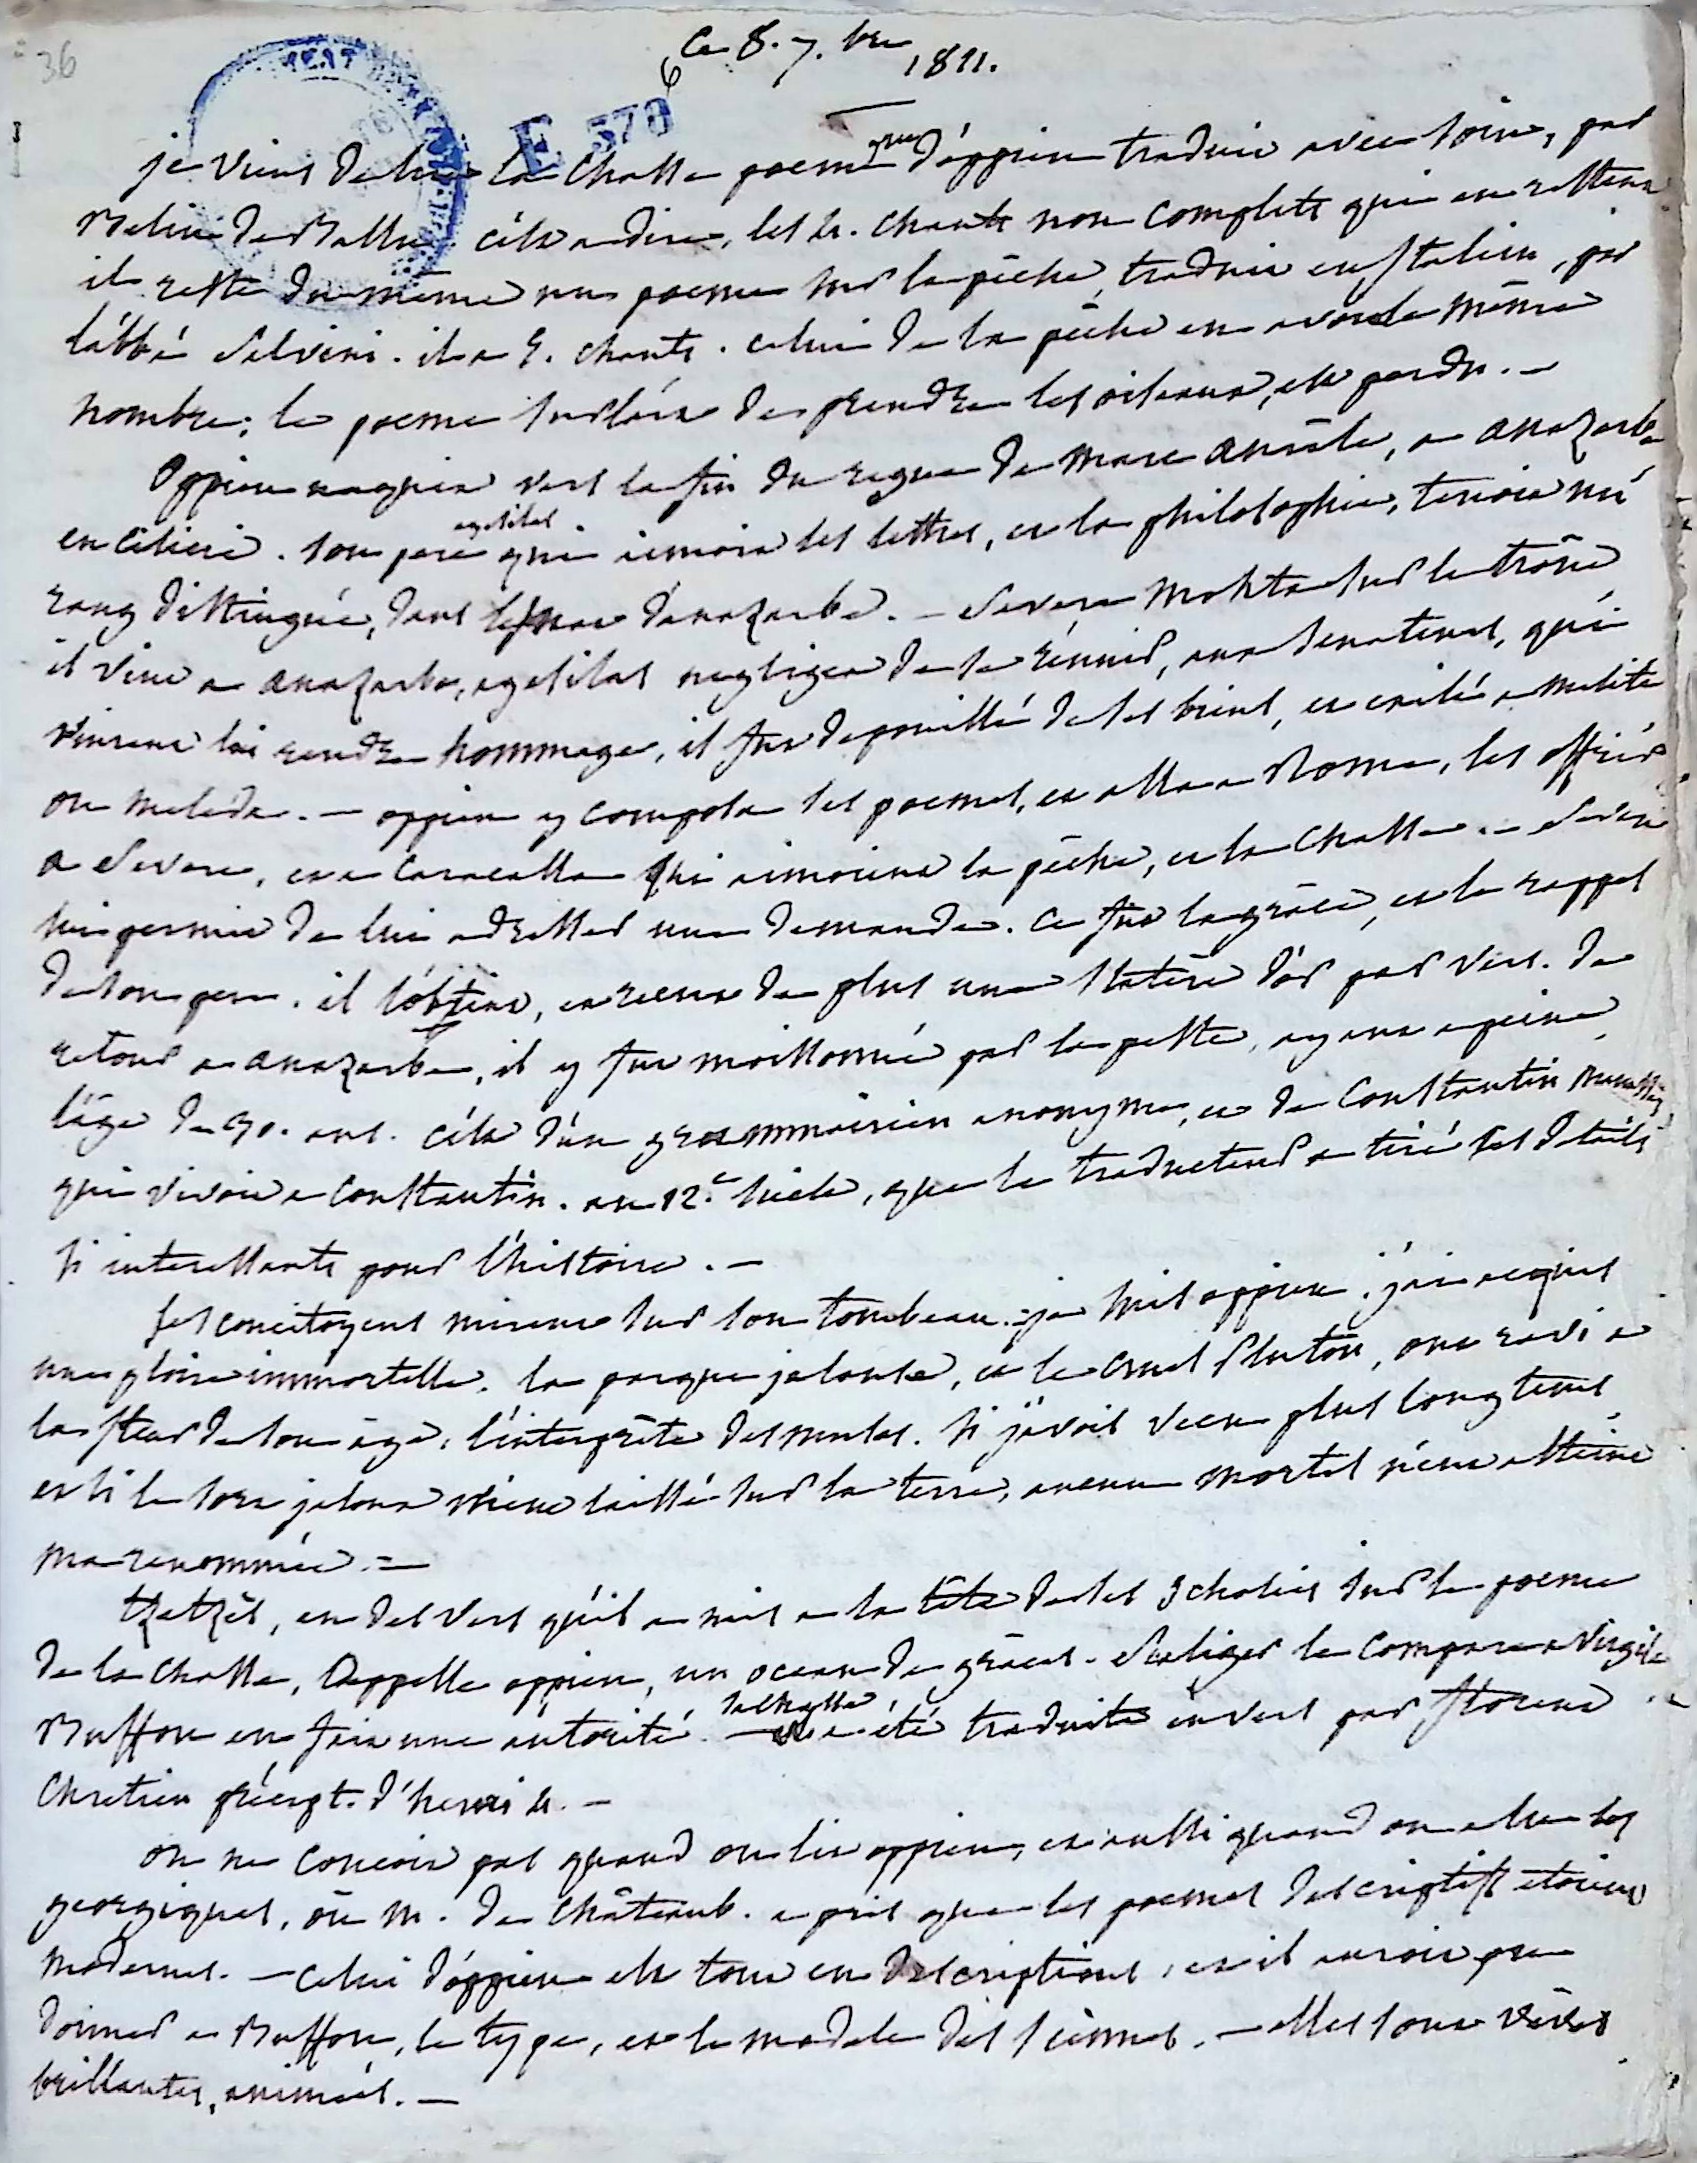 36
ce 8. 7.bre 1811.
6
E 370
je viens de lire la chasse poeme grec d'oppien traduit avec soin, par
Belin de Ballu c'est a dire, les 4. chants non complets qui en restent
il reste du même un poeme sur la pêche, traduit en italien, par
l'abbé Salvini. il a 5. chants. celui de la pêche en avoit le même
nombre; le poeme sur l'art de prendre les oiseaux, est perdu. —
Oppien naquit vers la fin du regne de marc aurèle, a anazarbe
en cilicie. son pere agesilas qui aimoit les lettres, et la philosophie, tenoit un
rang distingué, dans le senat d'anazarbe. — Severe monta sur le trône
il vint a anazarbe, agesilas negligea de se réunir, aux senateurs, qui
vinrent lui rendre hommage, il fut depouillé de ses biens, et exilé a melite
ou meleda. — oppien y composa ses poemes, et alla a Rome, les offrir
a Severe, et a caracalla qui aimoient la pêche, et la chasse. — Severe
lui permit de lui adresser une demande. ce fut la grâce, et le rappel
de son pere. il l'obtint, et recut de plus une statère d'or par vers. de
retour a anazarbe, il y fut moissonné par la peste, ayant a peine
l'âge de 30. ans. c'est d'un grammairien anonyme, et de Constantin Manassès
qui vivoit a constantin. au 12.e siecle, que le traducteur a tiré ses détails
si interessants pour l'histoire. —
ses concitoyens mirent sur son tombeau. je suis oppien, j'ai acquis
une gloire immortelle. la parque jalouse, et le cruel Pluton, ont ravi a
la fleur de son âge, l'interprète des muses. si j'avois vecu plus longtems
et si le sort jaloux m'eut laissé sur la terre, aucun mortel n'eut atteint
ma renommée. =
tzetzès, en des vers qu'il a mis a la tête de ses scholies sur le poeme
de la chasse, appelle oppien, un ocean de grâces. Scaliger le compare a Virgile
Buffon en fait une autorité. — la chasse a été traduite en vers par florent
Chretien précept. d'henri 4. —
on ne concoit pas quand on lit oppien, et aussi quand on a lu les
georgiques, où m. de Châteaub. a pris que les poemes descriptifs etoient
modernes. — celui d'oppien est tout en descriptions, et il auroit pu
donner a Buffon, le type, et le modele des siennes. — elles sont vives
brillantes, animées. —